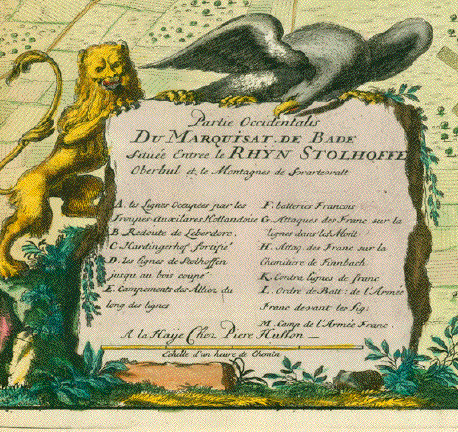 Partie Occidentalis
DU MARQUISAT. DE BADE
Située Entree le RHŸN STOLHOFFE
Oberbul et le Montagnes de Swartswalt
A. les Lignes Ocupées par les
Troupes auxilares Hollandois
B. Redoute de Leberdore.
C. Hardingerhof fortifié
D. les lignes de Stolhoffen
jusqu'au bois coupé
E. Campements des Alliez du
long des lignes
F. batteries Francois
G. Attaques des Franc sur la
lignes dans les Mont
H. Attaq des Franc sur la
Chemitere de Fimbach
K. Contra lignes de franc
L. Ordre de Batt: de l'Armée
Franc devant les lig:
M. Camp de l'Armée Franc.
A la Haye Chez Piere Husson
Echelle d'un heure de Chemin